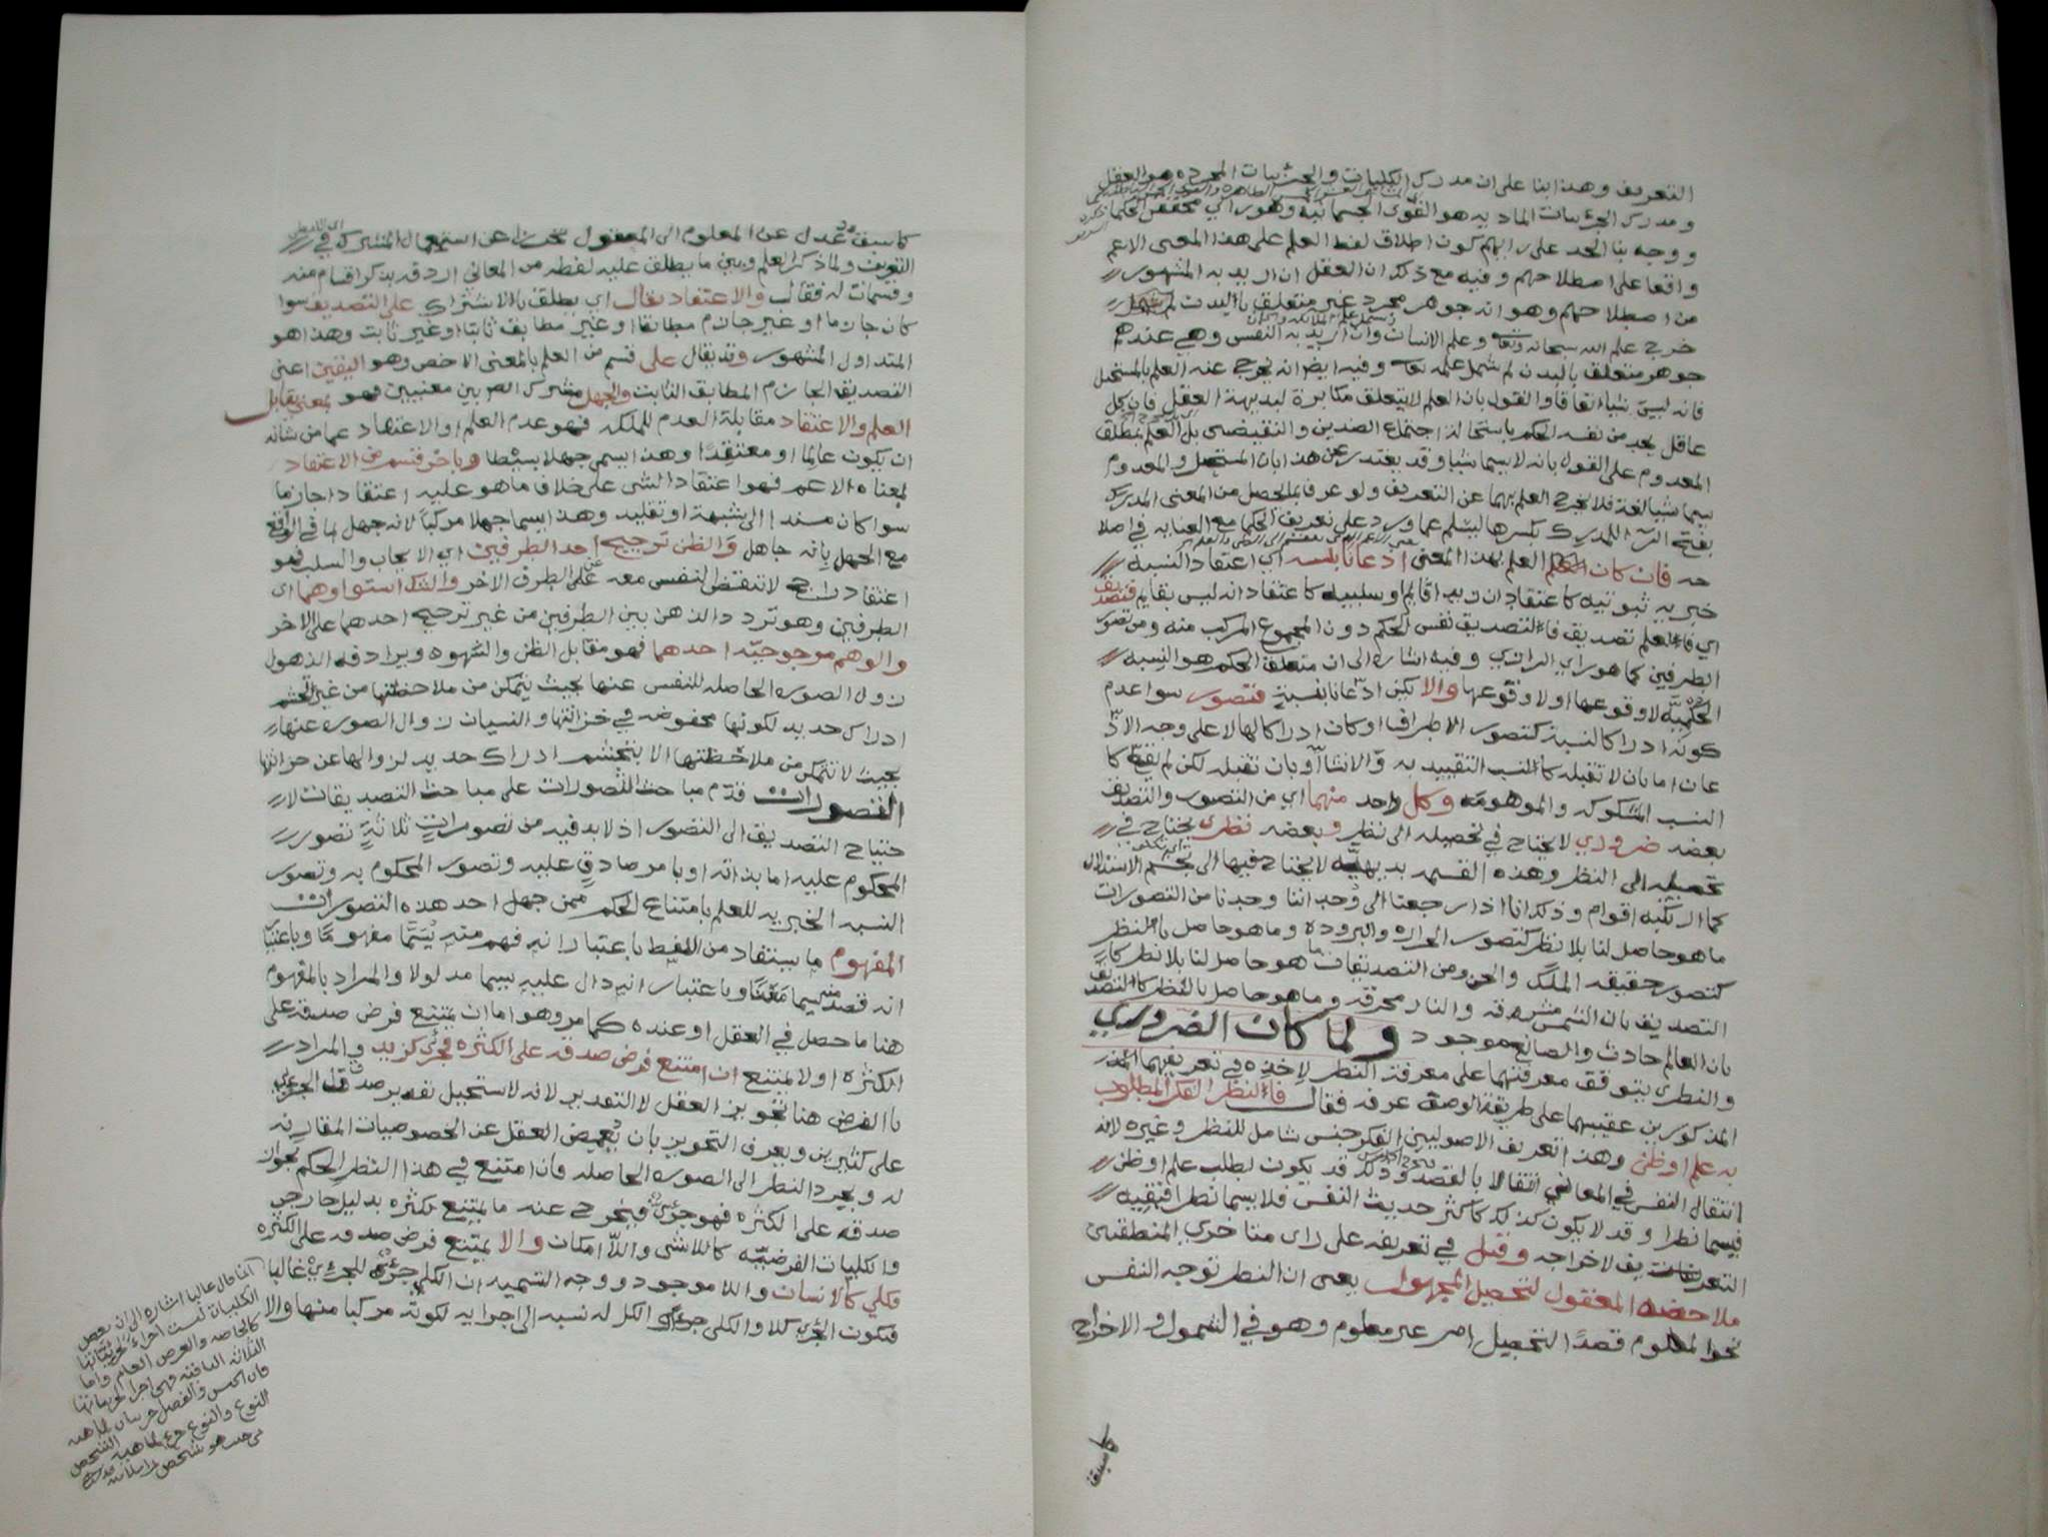 التعريف وهذا بنا على ان مدرك الكليات والجزئيات المجرده هو العقل
ومدرك الجزئيات الماديه هو القوى الجسمانية وهو راي محققي الحكما
ووجه بنا الحد على رايهم كون اطلاق لفظ العلم على هذا المعنى الاعم
واقعا على اصطلاحهم وفيه مع ذلك ان العقل ان اريد به المشهور
من اصطلاحهم وهو انه جوهر مجرد غير متعلق بالبدن لم يشمل
خرج علم الله سبحانه وتعالى وعلم الانسان وان اريد به النفس وهي عندهم
جوهر متعلق بالبدن لم يشمل علمه تعالى وفيه ايضا انه يخرج عنه العلم بالمستحيل
فانه ليس شيا اتفاقا والقول بان العلم لا يتعلق مكابرة لبديهة العقل فان كل
عاقل يجد من نفسه الحكم باستحالة اجتماع الضدين والنقيضين بل العلم يتعلق
المعدوم على القول بانه لا يسما شيا وقد يعتذر عن هذا بان المستحيل والمعدوم
يسما شيا لغة فلا يخرج العلم بهما عن التعريف ولو عرف بما يحصل من المعنى المدرك
بفتح الرا للمدرك بكسرها ليسلم عما ورد على تعريف الحكما مع العنايه في اصلا
حه فان كان العلم بهذا المعنى اذعانا بنسبه اي اعتقاد النسبه
خبريه ثبوتيه كاعتقاد ان زيدا قايم او سلبيه كاعتقاد انه ليس بقايم فتصديق
اي فالعلم تصديق فالتصديق نفس الحكم دون المجموع المركب منه ومن تصور
الطرفين كما هو راي الرازي وفيه اشاره الى ان متعلق الحكم هو النسبه
الحكميه لا وقوعها او لا وقوعها والا يكن اذعانا بنسبة فتصور سوا عدم
كونه ادراكا لنسبة كتصور الاطراف او كان ادراكا لها لا على وجه الاذ
عان اما بان لا تقبله كالنسب التقييديه والانشا او بان تقبله لكن لم يقع كا
النسب المشكوكه والموهومه وكل واحد منهما اي من التصور والتصديق
بعضه ضروري لا يحتاج في تحصيله الى نظر وبعضه نظري يحتاج في
تحصيله الى النظر وهذه القسمه بديهيه لا يحتاج فيها الى تجشم الاستدلال
كما ارتكبه اقوام وذلك انا اذا رجعنا الى وجداننا وجدنا من التصورات
ما هو حاصل لنا بلا نظر كتصور الحراره والبروده وما هو حاصل بالنظر
كتصور حقيقه الملك والجن ومن التصديقات ما هو حاصل لنا بلا نظر كا
التصديق بان الشمس مشرقه والنار محرقه وما هو حاصل بالنظر كالتصديق
بان العالم حادث والصانع موجود ولما كان الضروري
والنظري يتوقف معرفتهما على معرفة النظر لاخذه في تعريفهما
المذكورين عقيبهما على طريقة الوصف عرفه فقال فالنظر الفكر المطلوب
به علم او ظن وهذا تعريف الاصوليين الفكر جنس شامل للنظر وغيره لانه
انتقال النفس في المعاني انتقالا بالقصد وذلك قد يكون لطلب علم او ظن
فيسما نظرا وقد لا يكون كذلك كاكثر حديث النفس فلا يسما نظرا فبقيه
التعريف لاخراجه وقيل في تعريفه على راى متاخري المنطقيين
ملاحضه المعقول لتحصيل المجهول يعنى ان النظر توجه النفس
نحو المعلوم قصدا لتحصيل امر غير معلوم وهو في الشمول والاخراج
كاسبق
كاسبق وعدل عن المعلوم الى المعقول تحرزا عن استعمال المشترك في
التعريف ولما ذكر العلم وبين ما يطلق عليه لفظه من المعاني اردفه بذكر اقسام منه
وقسيمات له فقال والاعتقاد يقال اي يطلق بالاشتراك على التصديق سوا
كان جازما او غير جازم مطابقا او غير مطابق ثابتا او غير ثابت وهذا هو
المتداول المشهور وقد يقال على قسم من العلم بالمعنى الاخص وهو اليقين اعنى
التصديق الجازم المطابق الثابت والجهل مشترك بين معنيين فهو بمعنى يقابل
العلم والاعتقاد مقابلة العدم للملكه فهو عدم العلم او الاعتقاد عما من شانه
ان يكون عالما او معتقدا وهذا يسمى جهلا بسيطا وباخر قسم من الاعتقاد
بمعناه الاعم فهو اعتقاد الشى على خلاف ما هو عليه اعتقادا جازما
سوا كان مسندا الى شبهة او تقليد وهذا يسما جهلا مركبا لانه جهل بما في الواقع
مع الجهل بانه جاهل والظن ترجيح احد الطرفين اي الايجاب والسلب فهو
اعتقاد راجح لا تنقبض النفس معه عن الطرف الاخر والشك استواوهما اى
الطرفين وهو تردد الذهن بين الطرفين من غير ترجيح احدهما على الاخر
والوهم مرجوحيه احدهما فهو مقابل الظن والسهو ويرادفه الذهول
زول الصوره الحاصله للنفس عنها بحيث يتمكن من ملاحظتها من غير تجشم
ادراك جديد لكونها محفوضه في خزانتها والنسيان زوال الصوره عنها
بحيث لا تتمكن من ملاحظتها الا بتجشم ادراك جديد لزوالها عن خزانتها
التصورات قدم مباحث التصورات على مباحث التصديقات لا
حتياج التصديق الى التصور اذ لا بد فيه من تصورات ثلاثة تصور
المحكوم عليه اما بذاته او بامر صادق عليه وتصور المحكوم به وتصور
النسبه الخبريه للعلم بامتناع الحكم ممن جهل احد هذه التصورات
المفهوم ما يستفاد من اللفظ باعتبار انه فهم منه يسما مفهوما وباعتبار
انه قصد منه يسما معنا وباعتبار انه دال عليه يسما مدلولا والمراد بالمفهوم
هنا ما حصل في العقل او عنده كما مر وهو اما ان يمتنع فرض صدقه على
الكثره او لا يمتنع ان امتنع فرض صدقه على الكثره فجزئي كزيد والمراد
بالفرض هنا تجويز العقل لا التقدير لانه لا يستحيل تقدير صدق الجزئي
على كثيرين ويعرف التجويز بان يغمض العقل عن الخصوصيات المقارنه
له ويجرد النظر الى الصوره الحاصله فان امتنع في هذا النظر الحكم بجواز
صدقه على الكثره فهو جزئي فيخرج عنه ما يمتنع تكثره بدليل خارجي
والكليات الفرضيه كاللاشى واللا امكان والا يمتنع فرض صدقه على الكثره
فكلي كالانسان واللا موجود ووجه التسميه ان الكلي جزء للجزئي غالبا
فيكون الجزئي كلا والكلي جزء الكل له نسبه الى اجزايه لكونه مركبا منها والا
انما قال غالبا اشاره الى ان بعض
الكليات ليست اجزاء لجزئياتها
كالخاصه والعرض العام واما
الثلاثه الباقيه فهي اجزا لجزياتها
فان الجنس والفصل جزءان لماهيه
النوع والنوع جزء لماهيه الشخص
من حيث هو شخص